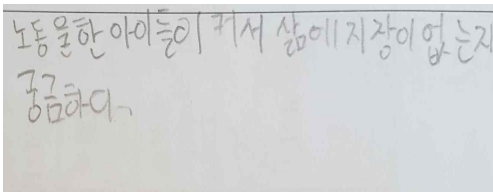 노동을한 아이들이 커서 삶에 지장이 없는지
궁금하다.